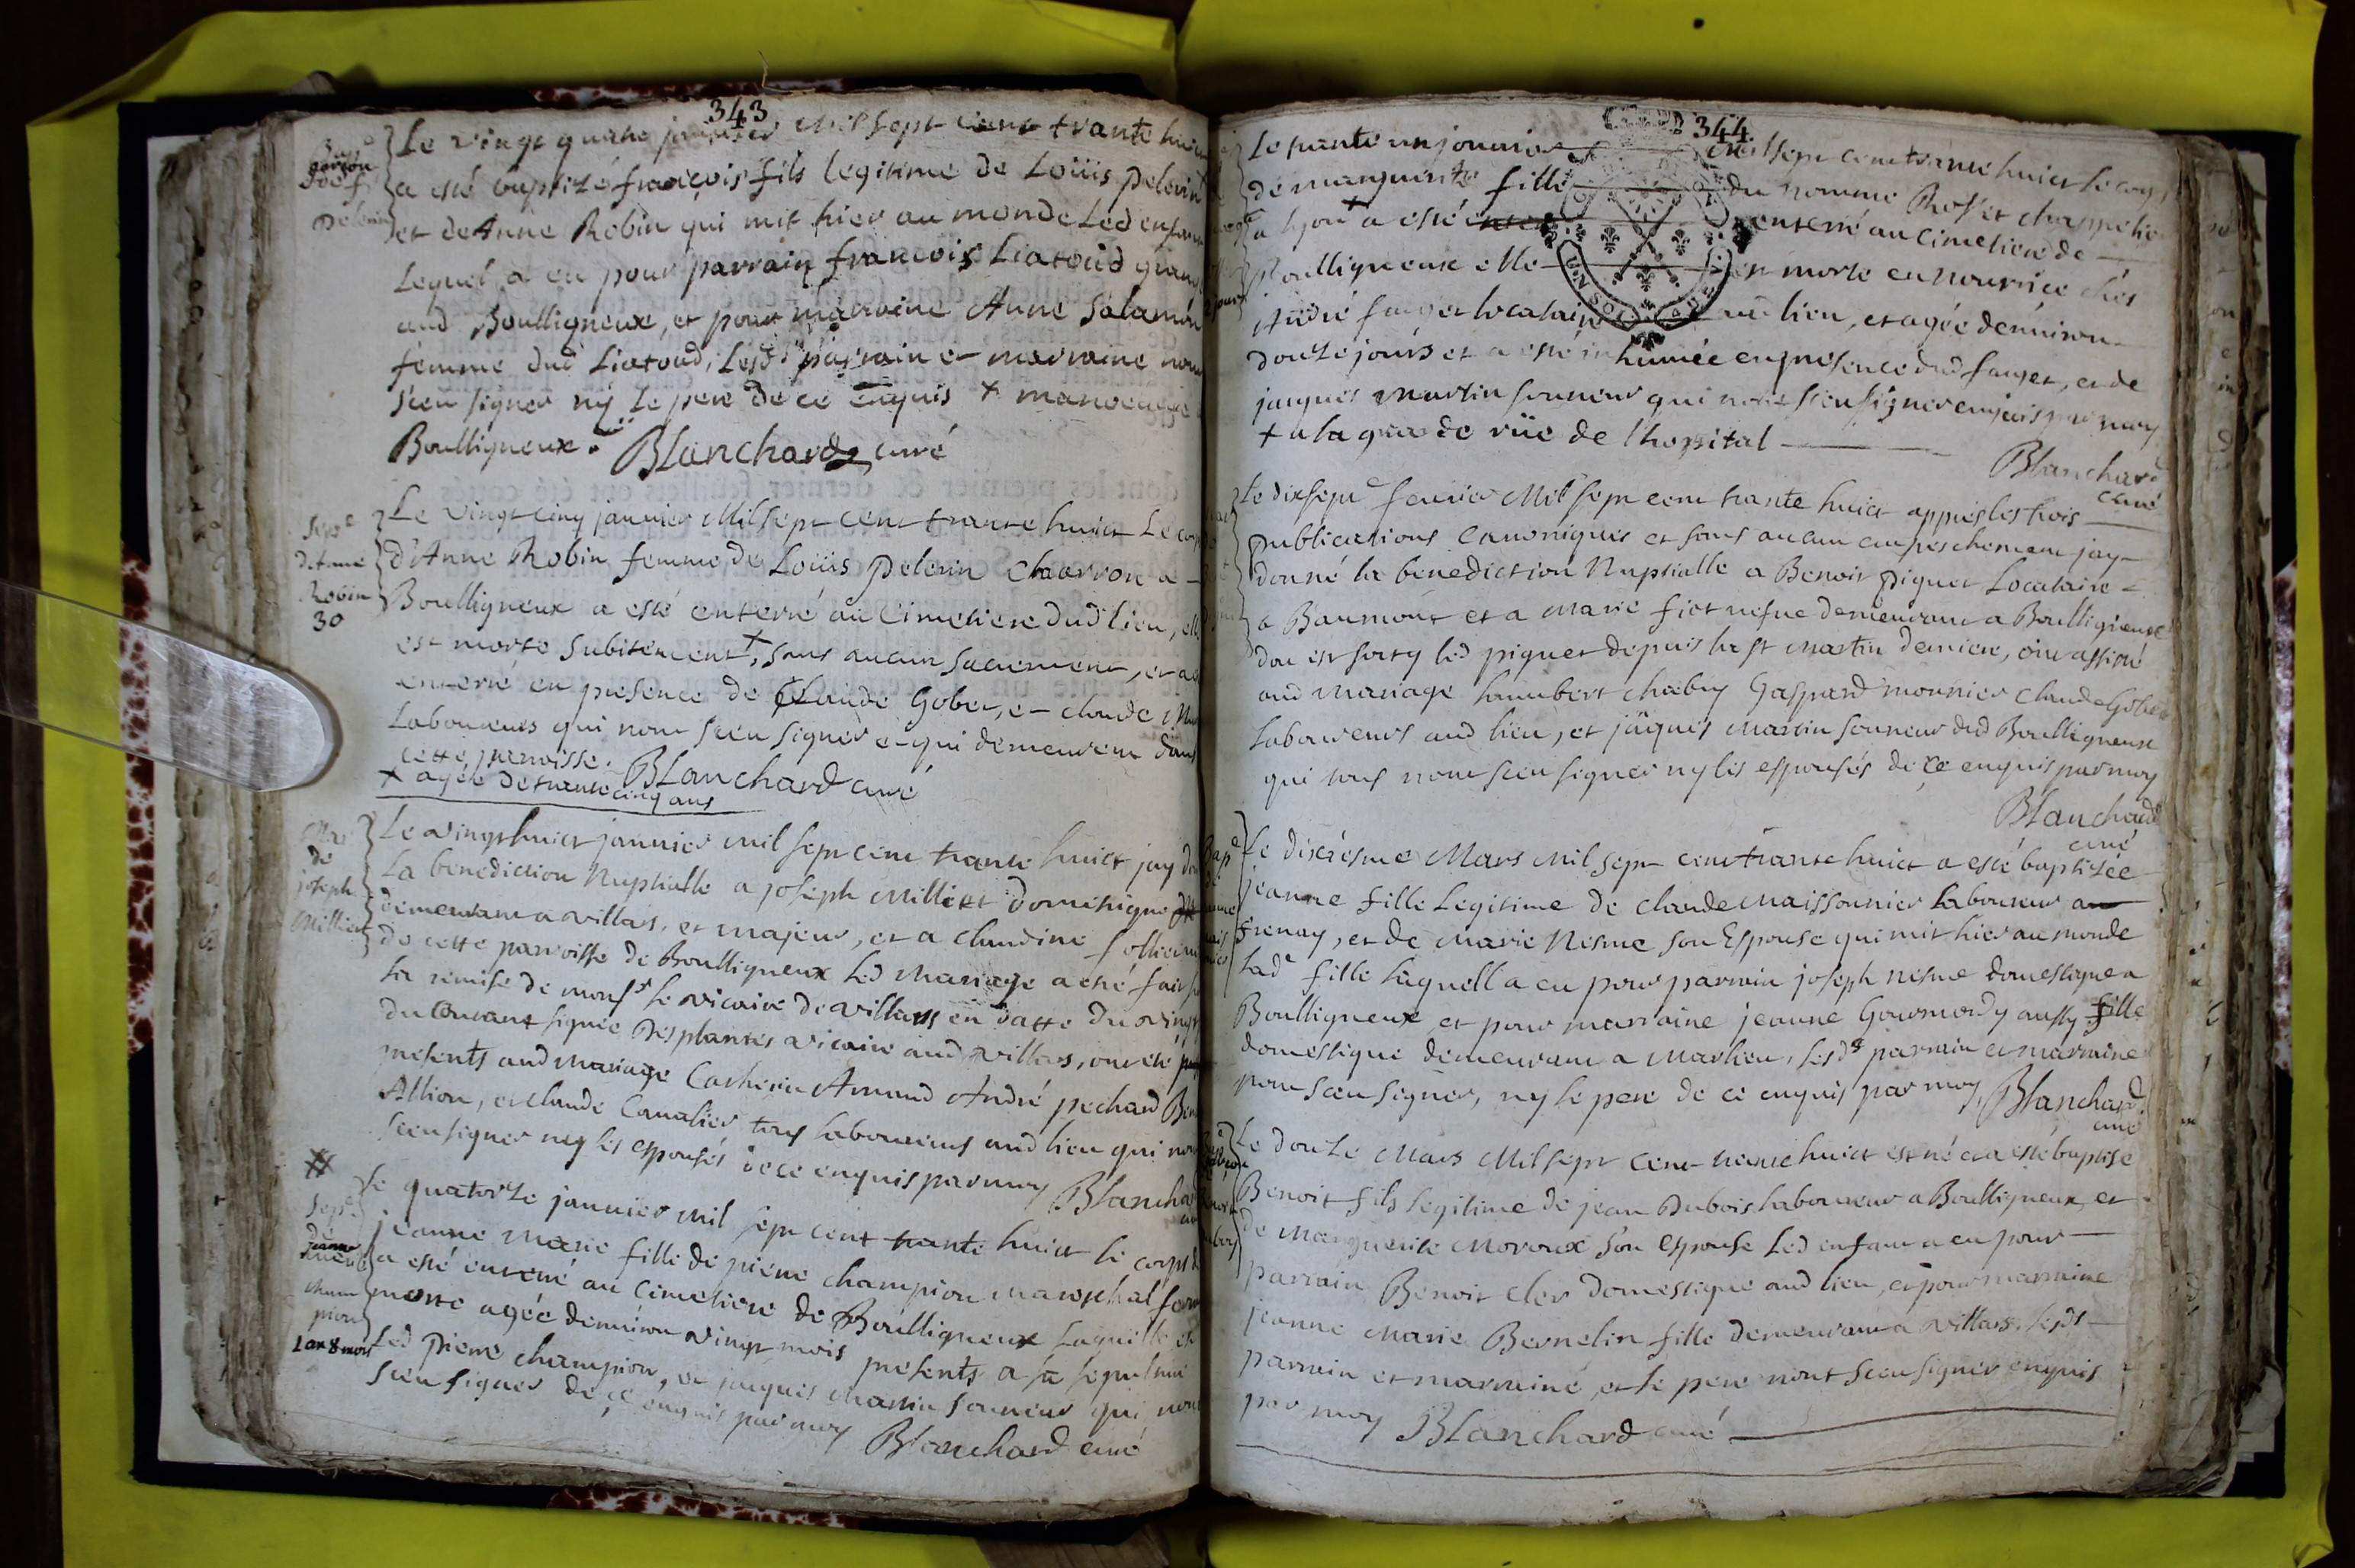 343
Bap.
garçon
de f.
Pelerin
Le vingt quatre janvier Mil sept cent trante huict
a esté baptizé françois fils legitime de Loüis Pelerin
et de Anne Robin qui mit hier au monde Led enfant
Lequel a eu pour parrain francois Liatoud
aud Boulligneux, et pour marraine Anne Salamon
femme dud Liatoud, Lesd parrain et marraine nont
sceu signer ny le pere de ce enquis +
Boulligneux. Blanchard curé
Sep.
d'Anne
Robin
30
Le Vingt cinq janvier Mil sept cent trante huict Le corp
d'Anne Robin femme de Loüis Pelerin charron a
Boulligneux a esté enterré au Cimetiere dud lieu, elle
est morte subitement +, sans aucun sacrement, et a
enterré en presence de Claude Gobet, et claude
Laboureurs qui nont sceu signer et qui demeurent dans
cette parroisse. Blanchard curé
+ agée de trante cinq ans
Mar
de
joseph
Milliet
Le vingt huict janvier mil sept cent trante huict jay
La benediction Nuptialle a joseph Milliet domestique
demeurant a villars, et majeur, et a claudine
de cette parroisse de Boulligneux Led Mariage a esté fait
la remise de monsr le vicaire de villars en datte du vingt
du Courant signée Desplantes vicaire aud villars, ont été
presents aud mariage Catherin Armand André pechard
Allion, et claude Cavalier tous laboureurs aud lieu qui nont
sceu signer ny les espousés de ce enquis par moy
Blanchard
#
Sep.
de
jeanne
marie
cham
pion
1 an 8 mois
Le quatorze janvier mil sept cent trante huict le corps
jeanne Marie fille de pierre champion mareschal
a esté enterré au cimetiere de Boulligneux Laquelle est
morte agée denviron vingt mois presents a sa sepulture
Led pierre champion, et jacques martin sonneur qui nont
sceu signer de ce enquis par moy
Blanchard curé
344
Le trante un janvier Mil sept cent trante huict le corp
de marguerite fille du nomme Roset chappelier
a lyon + a esté enterré au Cimetiere de
Boulligneux elle est morte en nourrice chés
André fauget locataire aud lieu, et agée denviron
douze jours et a esté inhumée en presence dud fauget, et de
jacques Martin sonneur qui nont sceu signer enquis par moy
+ a la grande rüe de lhospital
Blanchard
curé
Le dix sept fevrier Mil sept cent trante huict apprés les trois
publications Canoniques et sans aucun empeschement jay
donné la benediction Nuptialle a Benoit piquet Locataire
a Baumont et a Marie fiot vefue demeurant a Boulligneux
dou est sorty led piquet depuis la st martin derniere, ont assisté
aud Mariage humbert chabry Gaspard monnier claude Gobet
Laboureurs aud lieu, et jäques Martin sonneur dud Boulligneux
qui tous nont sceu signer ny les espousés de ce enquis par moy
Blanchard
curé
Le dixiésme Mars mil sept cent trante huict a esté baptisée
jeanne fille Legitime de claude Maissonnier laboureur au
frenay, et de Marie Nesme son Espouse qui mit hier au monde
lade fille laquell a eu pour parrain joseph nesme domestique a
Boulligneux et pour marraine jeanne Gourmordy aussy fille
domestique demeurant a Marlieu, lesds parrain et marraine
nont sceu signer, ny le pere de ce enquis par moy Blanchard
curé
Le douze Mars Mil sept cent trante huict est né et a esté baptisé
Benoit fils legitime de jean Dubois laboureur a Boulligneux et
de Marguerite Moroux son espouse Led enfant a eu pour
parrain Benoit cler domestique aud lieu, et pour marraine
jeanne Marie Bernelin fille demeurant a villars, lesds
parrain et marraine, et le pere nont sceu signer enquis
par moy Blanchard curé